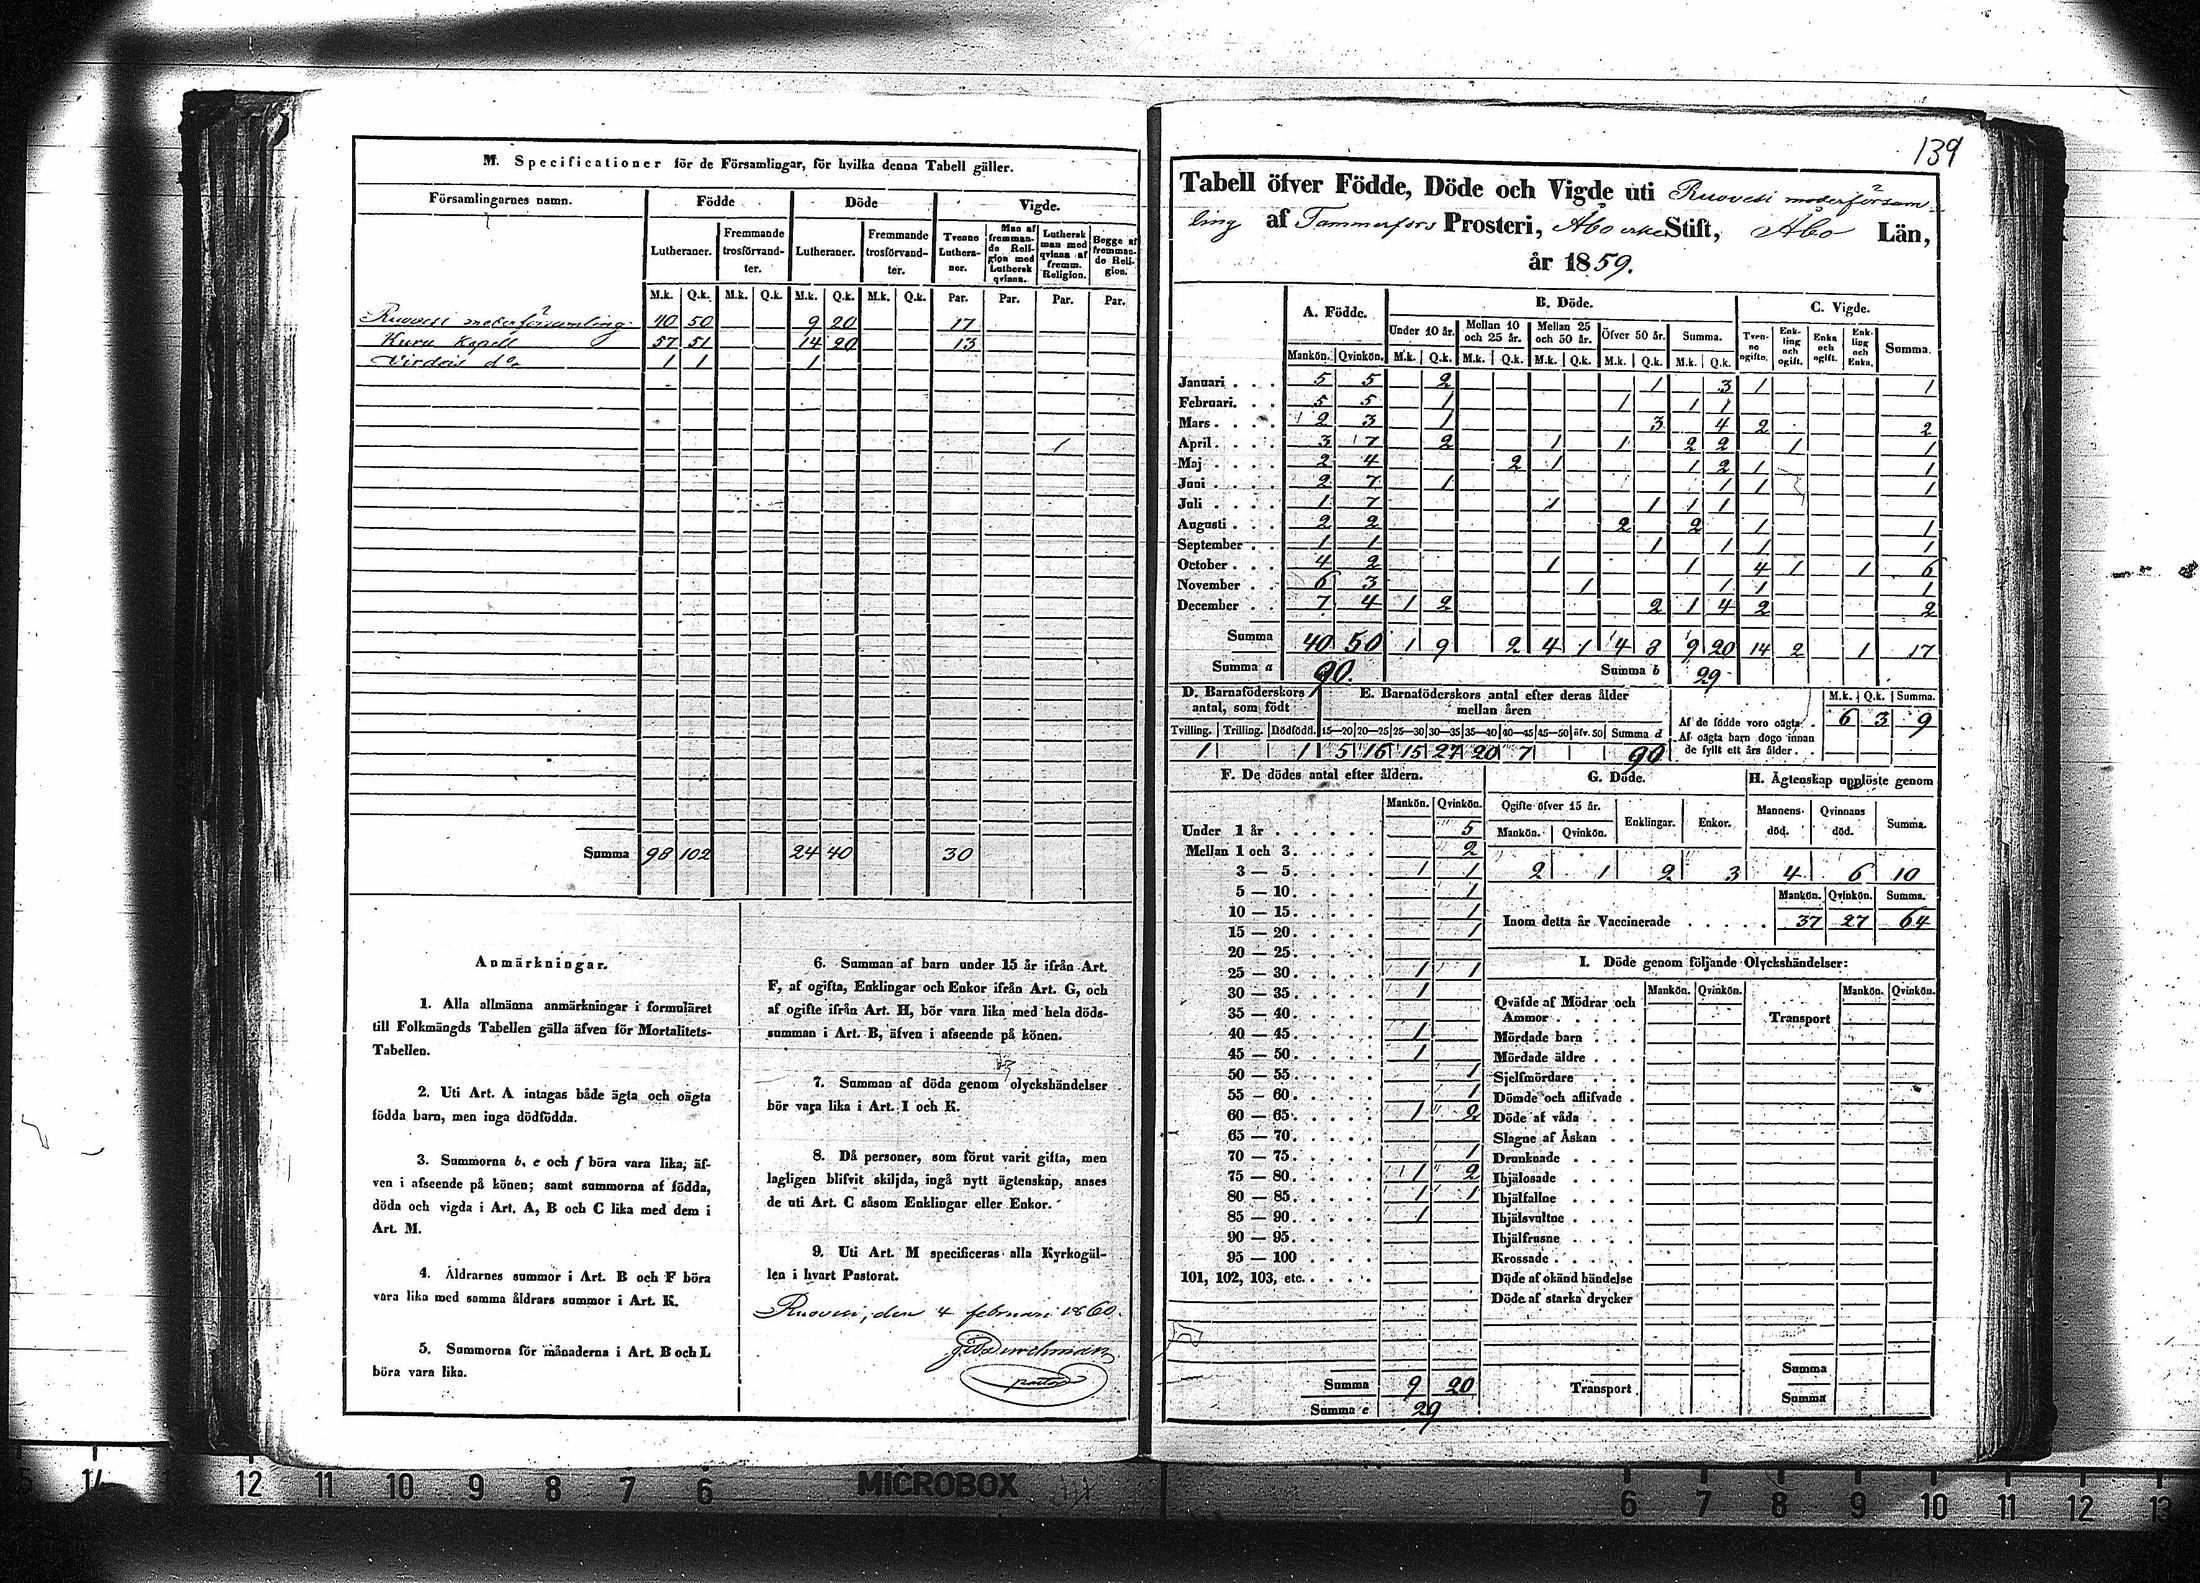 M. Specificationer för de Församlingar, för hvilka denna Tabell gäller.
Församlingarnes namn. Födde Döde Vigde.
Lutheraner. Fremmande trosförvandter. Lutheraner. Fremmande trosförvandter. Tvenne Lutheraner. Man af fremmande Religion med Luthersk qvinna. Luthersk man med qvinna af fremm. Religion. Begge af fremmande Religion.
M.k. Q.k. M.k. Q.k. M.k. Q.k. M.k. Q.k. Par. Par. Par. Par.
Ruovesi moderförsamling 40 50 9 20 17
Kuru Kapell 57 51 14 20 13
Virdois d:o 1 1 1
Summa 98 102 24 40 30
Anmärkningar.
1. Alla allmänna anmärkningar i formuläret
till Folkmängds Tabellen gälla äfven för Mortalitets-
Tabellen.
2. Uti Art. A intagas både ägta och oägta
födda barn, men inga dödfödda.
3. Summorna b, e och f böra vara lika; äf-
ven i afseende på könen; samt summorna af födda,
döda och vigda i Art. A, B och C lika med dem i
Art. M.
4. Åldrarnes summor i Art. B och F böra
vara lika med samma åldrars summor i Art. K.
5. Summorna för månaderna i Art. B och L
böra vara lika.
6. Summan af barn under 15 år ifrån Art.
F, af ogifta, Enklingar och Enkor ifrån Art. G, och
af ogifte ifrån Art. H, bör vara lika med hela döds-
summan i Art. B, äfven i afseende på könen.
7. Summan af döda genom olyckshändelser
bör vara lika i Art. I och K.
8. Då personer, som förut varit gifta, men
lagligen blifvit skiljda, ingå nytt ägtenskap, anses
de uti Art. C såsom Enklingar eller Enkor.
9. Uti Art. M specificeras alla Kyrkogäl-
len i hvart Pastorat.
Ruovesi, den 4 februari 1860.
pastor
139
Tabell öfver Födde, Döde och Vigde uti Ruovesi moderförsam-
ling af Tammerfors Prosteri, Åbo erke Stift, Åbo Län,
år 1859.
A. Födde. B. Döde. C. Vigde.
Under 10 år. Mellan 10 och 25 år. Mellan 25 och 50 år. Öfver 50 år. Summa. Tvenne ogifte. Enkling och ogift. Enka och ogift. Enkling och Enka. Summa.
Mankön. Qvinkön. M.k. Q.k. M.k. Q.k. M.k. Q.k. M.k. Q.k. M.k. Q.k.
Januari 5 5 2 1 3 1 1
Februari 5 5 1 1 1 1
Mars 2 3 1 3 4 2 2
April 3 7 2 1 1 2 2 1 1
Maj 2 4 2 1 1 2 1 1
Juni 2 7 1 1 1 1
Juli 1 7 1 1 1 1
Augusti 2 2 2 2 1 1
September 1 1 1 1 1 1
October 4 2 1 1 4 1 1 6
November 6 3 1 1 1 1
December 7 4 1 2 2 1 4 2 2
Summa 40 50 1 9 2 4 1 4 8 9 20 14 2 1 17
Summa a 90. Summa b 29
D. Barnaföderskors antal, som födt
Tvilling. Trilling. Dödfödd.
1 1
E. Barnaföderskors antal efter deras ålder mellan åren
15—20 20—25 25—30 30—35 35—40 40—45 45—50 öfv. 50 Summa d
5 16 15 27 20 7 90
M.k. Q.k. Summa.
Af de födde voro oägta 6 3 9
Af oägta barn dogo innan
de fyllt ett års ålder
F. De dödes antal efter åldern.
Mankön. Qvinkön.
Under 1 år 5
Mellan 1 och 3 2
3 — 5 1 1
5 — 10 1
10 — 15 1
15 — 20 1
20 — 25
25 — 30 1 1
30 — 35 1
35 — 40
40 — 45 1
45 — 50 1
50 — 55 1
55 — 60 1
60 — 65 1 2
65 — 70
70 — 75 1
75 — 80 1 2
80 — 85 1 1
85 — 90 1
90 — 95
95 — 100
101, 102, 103, etc.
Summa 9 20
Summa e 29
G. Döde.
Ogifte öfver 15 år. Enklingar. Enkor.
Mankön. Qvinkön.
2 1 2 3
H. Ägtenskap upplöste genom
Mannens död. Qvinnans död. Summa.
4 6 10
Mankön. Qvinkön. Summa.
Inom detta år Vaccinerade 37 27 64
I. Döde genom följande Olyckshändelser:
Mankön. Qvinkön. Mankön. Qvinkön.
Qväfde af Mödrar och
Ammor
Transport
Mördade barn
Mördade äldre
Sjelfmördare
Dömde och aflifvade
Döde af våda
Slagne af Åskan
Drunknade
Ihjälosade
Ihjälfallne
Ihjälsvultne
Ihjälfrusne
Krossade
Döde af okänd händelse
Döde af starka drycker
Summa
Transport
Summa
14 12 11 10 9 8 7 6 MICROBOX 6 7 8 9 10 11 12 13